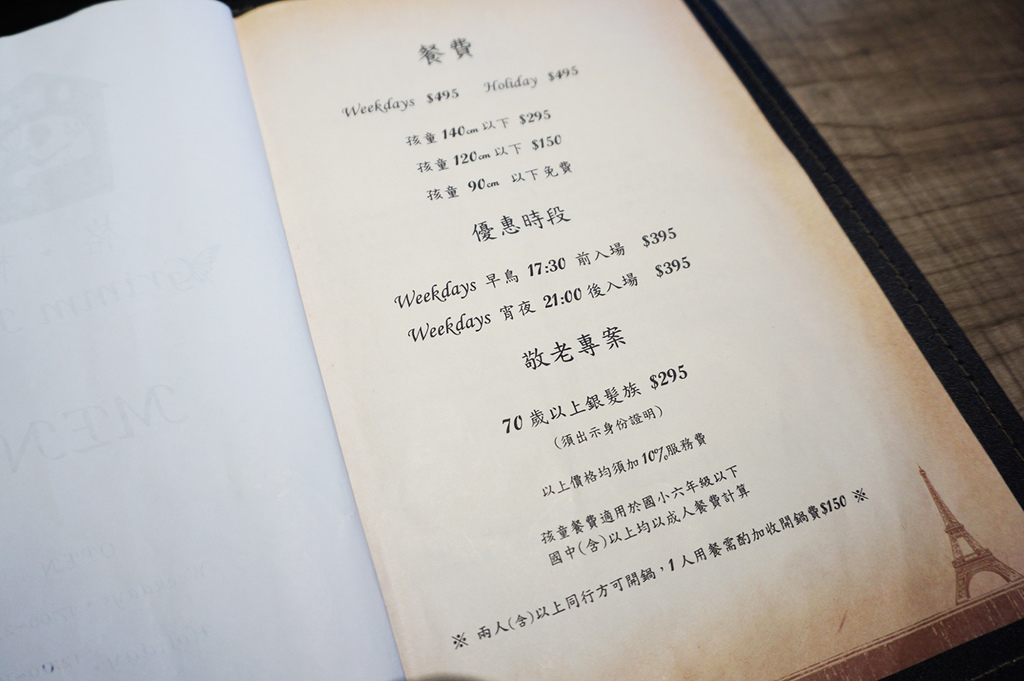 餐費
Weekdays $495 Holiday $495
孩童 140cm 以下 $295
孩童 120cm 以下 $150
孩童 90cm 以下免費
優惠時段
Weekdays 早鳥 17:30 前入場 $395
Weekdays 宵夜 21:00 後入場 $395
敬老專案
70 歲以上銀髮族 $295
(須出示身份證明)
以上價格均須加 10%服務費
孩童餐費適用於國小六年級以下
國中(含)以上均以成人餐費計算
※ 兩人(含)以上同行方可開鍋，1 人用餐需酌加收開鍋費$150 ※